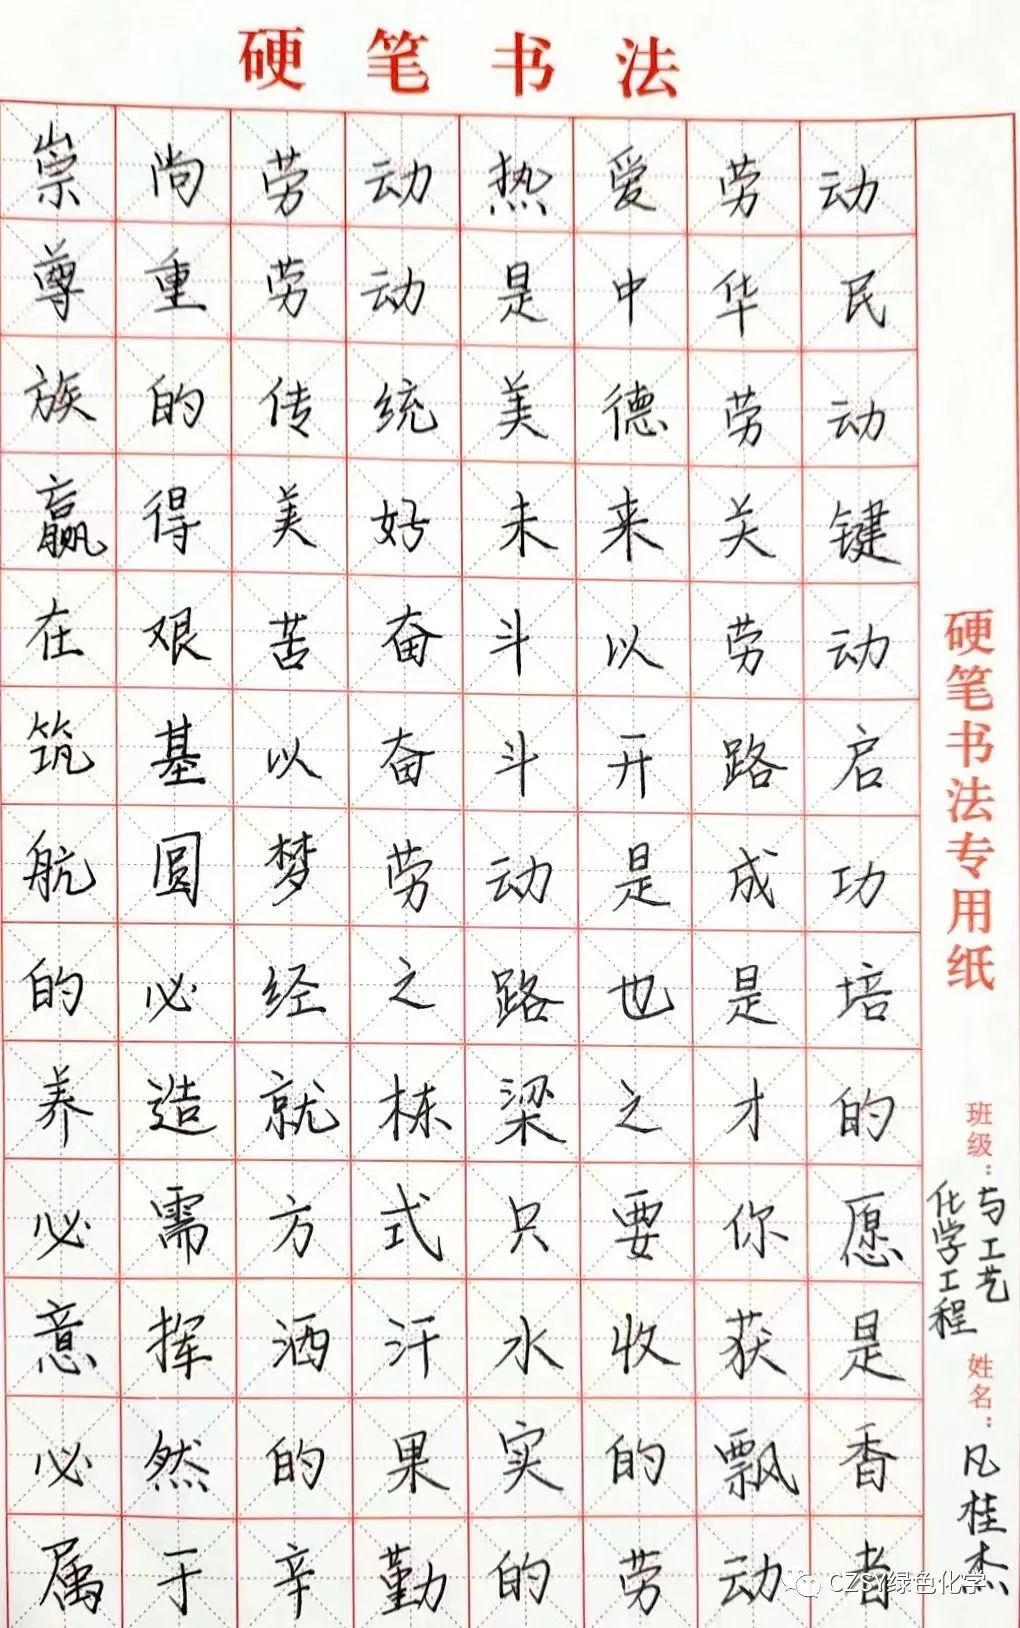 硬笔书法
崇尚劳动热爱劳动
尊重劳动是中华民
族的传统美德劳动
赢得美好未来关键
在艰苦奋斗以劳动
筑基以奋斗开路启
航圆梦劳动是成功
的必经之路也是培
养造就栋梁之才的
必需方式只要你愿
意挥洒汗水收获是
必然的果实的飘香
属于辛勤的劳动者
硬笔书法专用纸
班级:化学工程
与工艺
姓名:凡桂杰
CZSY绿色化学